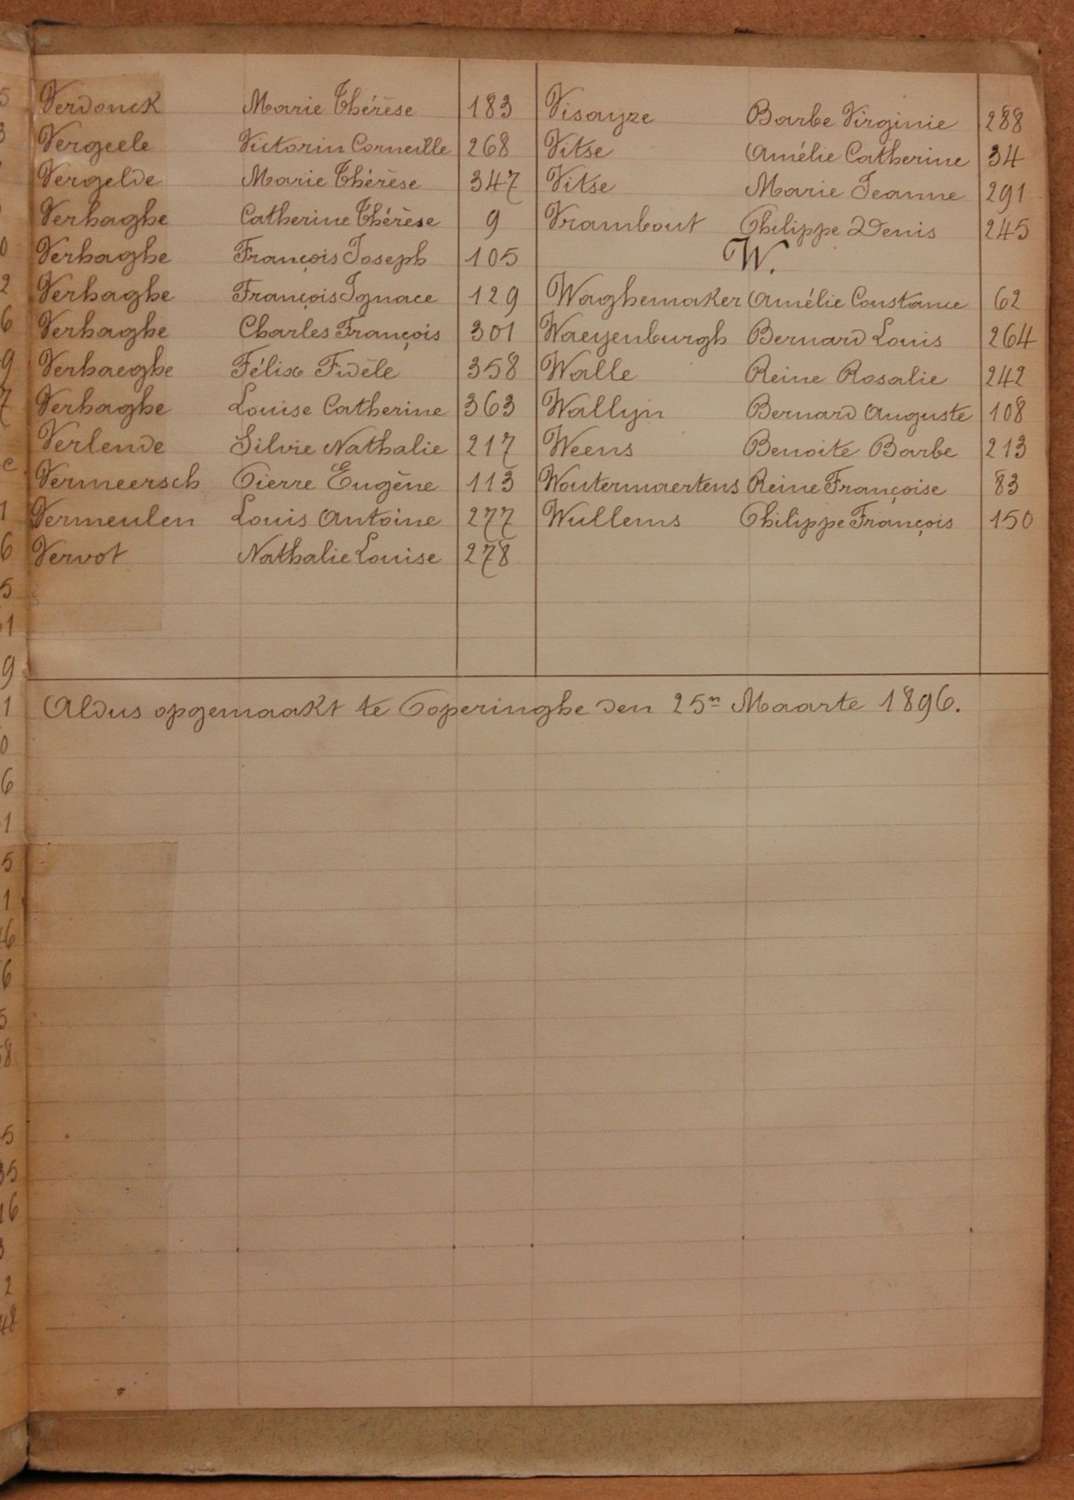 Verdonck Marie Thérèse 183
Vergeele Victorin Corneille 268
Vergelde Marie Thérèse 347
Verhaghe Catherine Thérèse 9
Verhaghe François Joseph 105
Verhaghe François Ignace 129
Verhaghe Charles François 301
Verhaeghe Félix Fidèle 358
Verhaghe Louise Catherine 363
Verlende Silvie Nathalie 217
Vermeersch Pierre Eugène 113
Vermeulen Louis Antoine 277
Vervot Nathalie Louise 278
Visayze Barbe Virginie 288
Vitse Amélie Catherine 34
Vitse Marie Jeanne 291
Vrambout Philippe Denis 245
W.
Waghemaker Amélie Constance 62
Waeyenburgh Bernard Louis 264
Walle Reine Rosalie 242
Wallyn Bernard Auguste 108
Weens Benoite Barbe 213
Woutermaertens Reine Françoise 83
Wullems Philippe François 150
Aldus opgemaakt te Poperinghe den 25n Maarte 1896.